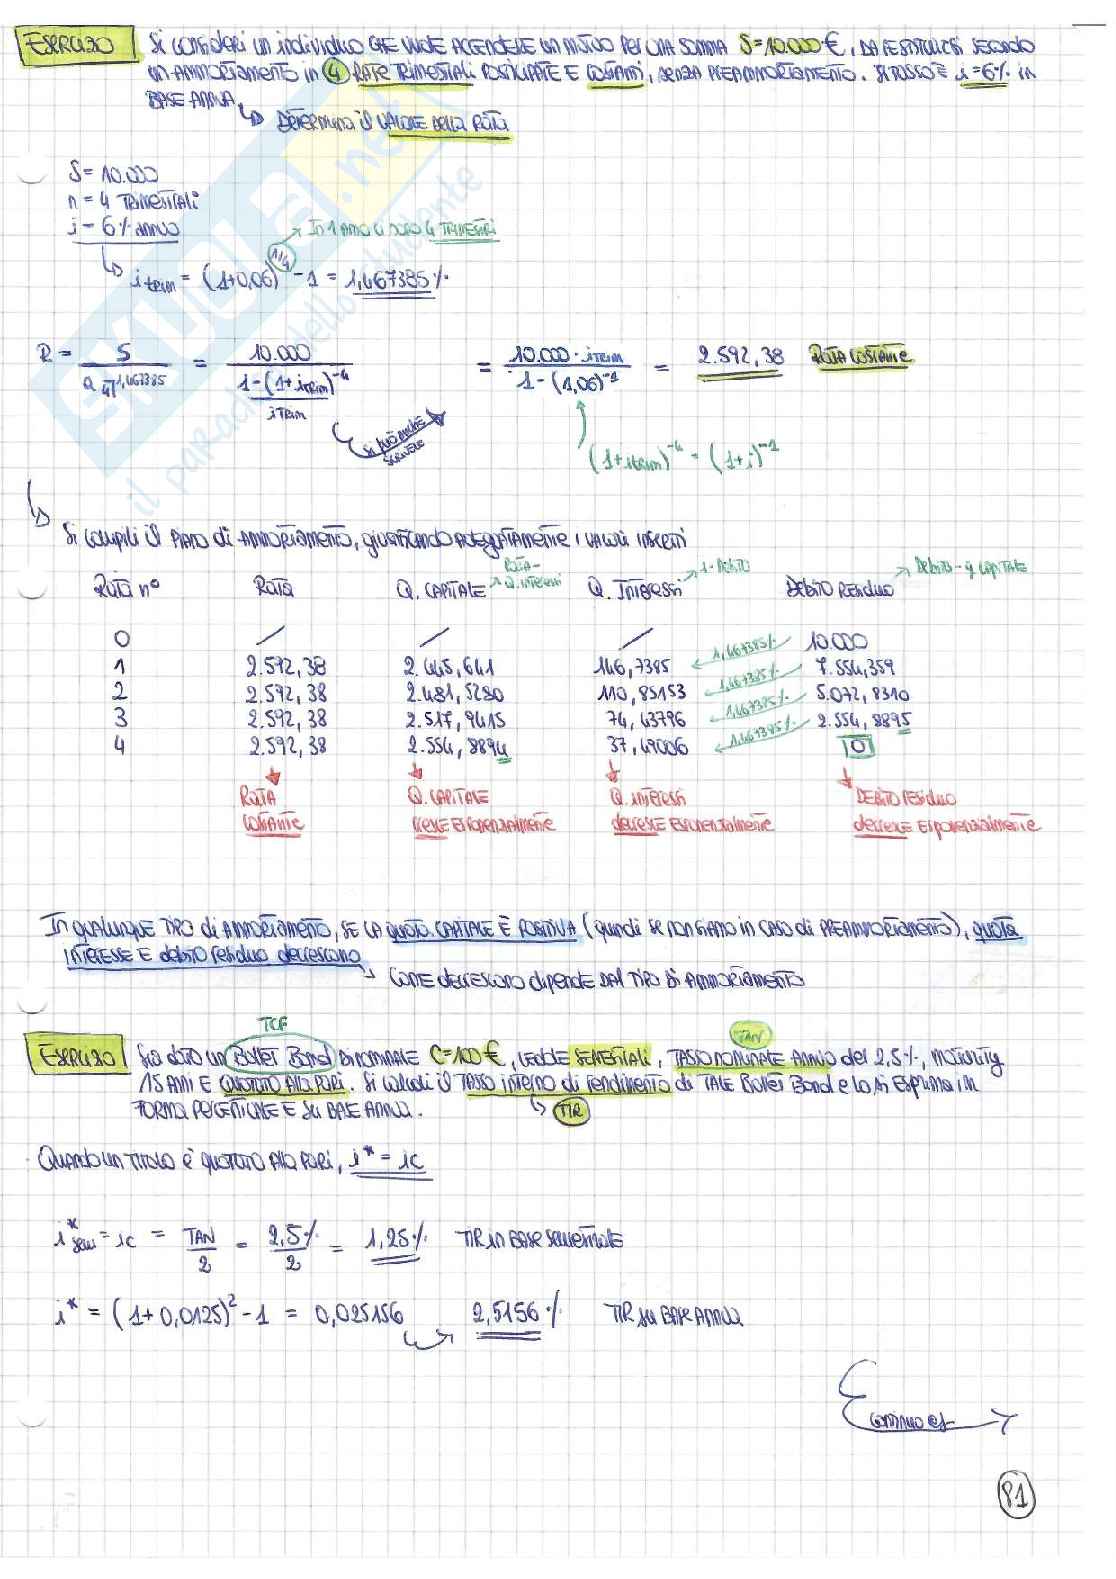 ESERCIZIO Si consideri un individuo CHE VUOLE ACCENDERE UN MUTUO PER UNA SOMMA S=10.000 €, DA RESTITUIRSI SECONDO
UN AMMORTAMENTO in 4 RATE TRIMESTRALI POSTICIPATE E COSTANTI, SENZA PREAMMORTAMENTO. Il TASSO È i=6% in
BASE ANNUA.
DETERMINA il VALORE DELLA RATA
S= 10.000
n = 4 TRIMESTRALI
i = 6% ANNUO
In 1 ANNO ci sono 4 TRIMESTRI
i trim = (1+0,06)^1/4 - 1 = 1,467385%
R = S / a 4| 1,467385 = 10.000 / 1-(1+i trim)^-4 / i TRIM = 10.000 · i TRIM / 1-(1,06)^-1 = 2.592,38 RATA COSTANTE
Si PUÒ ANCHE SCRIVERE
(1+i trim)^-4 = (1+i)^-1
Si compili il PIANO di AMMORTAMENTO, giustificando ADEGUATAMENTE i VALORI INSERITI
RATA n° RATA Q. CAPITALE RATA - Q. interessi Q. INTERESSI i · DEBITO DEBITO RESIDUO DEBITO - q CAPITALE
0 / / / 1,467385% 10.000
1 2.592,38 2.445,641 146,7385 1,467385% 7.554,359
2 2.592,38 2.481,5280 110,85153 1,467385% 5.072,8310
3 2.592,38 2.517,9415 74,43796 1,467385% 2.554,8895
4 2.592,38 2.554,8894 37,49006 0
RATA COSTANTE
Q. CAPITALE cresce ESPONENZIALMENTE
Q. interessi decresce ESPONENZIALMENTE
DEBITO residuo decresce ESPONENZIALMENTE
In QUALUNQUE TIPO di AMMORTAMENTO, SE LA QUOTA CAPITALE È POSITIVA (quindi se non siamo in caso di PREAMMORTAMENTO), quota
INTERESSE E debito residuo decrescono
COME DECRESCONO dipende DAL TIPO DI AMMORTAMENTO
TCF
TAN
ESERCIZIO Sia dato un Bullet Bond DI NOMINALE C=100 €, CEDOLE SEMESTRALI, TASSO NOMINALE ANNUO del 2,5%, maturity
15 ANNI E QUOTATO ALLA PARI. Si calcoli il TASSO interno di rendimento di TALE Bullet Bond e lo si ESPRIMA in
FORMA PERCENTUALE E SU BASE ANNUA.
TIR
QUANDO UN TITOLO È QUOTATO ALLA PARI, i* = ic
i* sem = ic = TAN / 2 = 2,5% / 2 = 1,25% TIR in BASE SEMESTRALE
i* = (1+0,0125)^2 - 1 = 0,025156 2,5156% TIR SU BASE ANNUA
Continuo es
81
SKUOLA.net
il paradiso dello studente